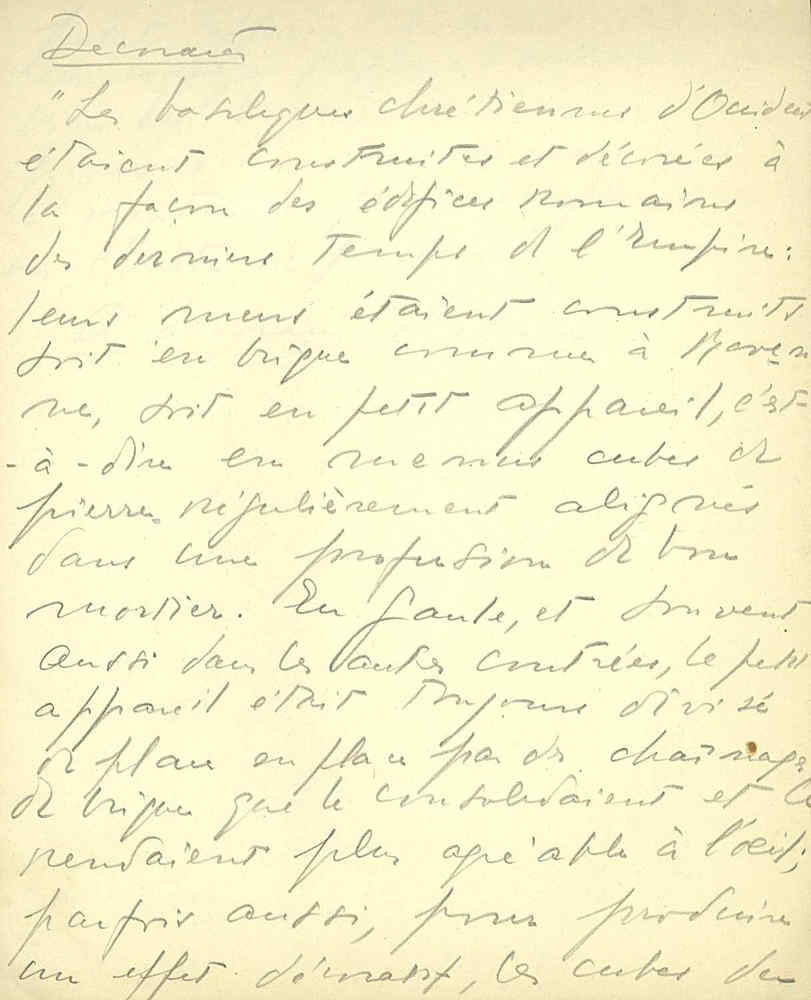 "Les basiliques chrétiennes d'Occident
étaient construites et décorées à
la façon des édifices romains
des derniers temps de l'Empire:
leurs murs étaient construits
soit en brique comme à Raven
ne, soit en petit appareil, c'est-
-à-dire en menus cubes de
pierre régulièrement alignés
dans une profusion de bon
mortier. En Gaule, et souvent
aussi dans les autres contrées, le petit
appareil était toujours divisé
de place en place par des chaînages
de brique que le consolidaient et le
rendaient plus agréable à l'œil;
parfois aussi, pour produire
un effet décoratif, les cubes de